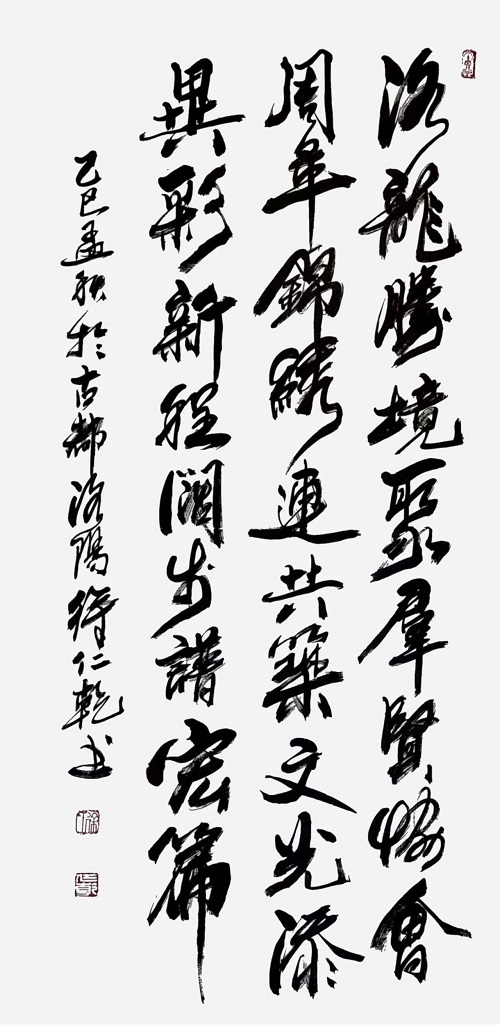 洛龍騰境聚羣賢恊會
周年錦繡連共築文光添
異彩新程闊步譜宏篇
乙巳孟秋於古都洛陽徐仁乾书